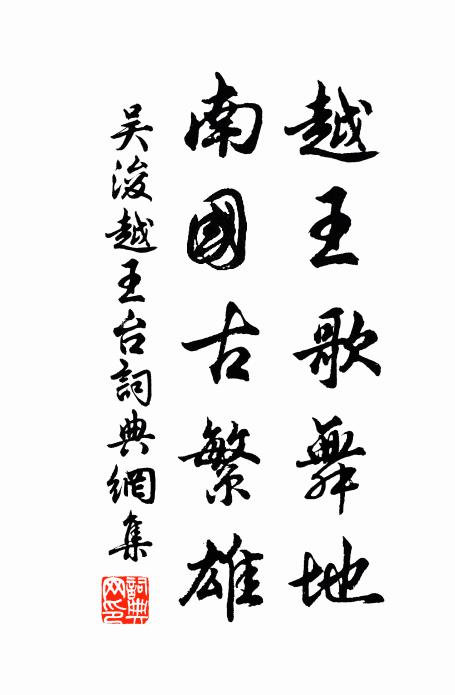 越王歌舞地
南國古繁雄
吴浚越王台詞典網集